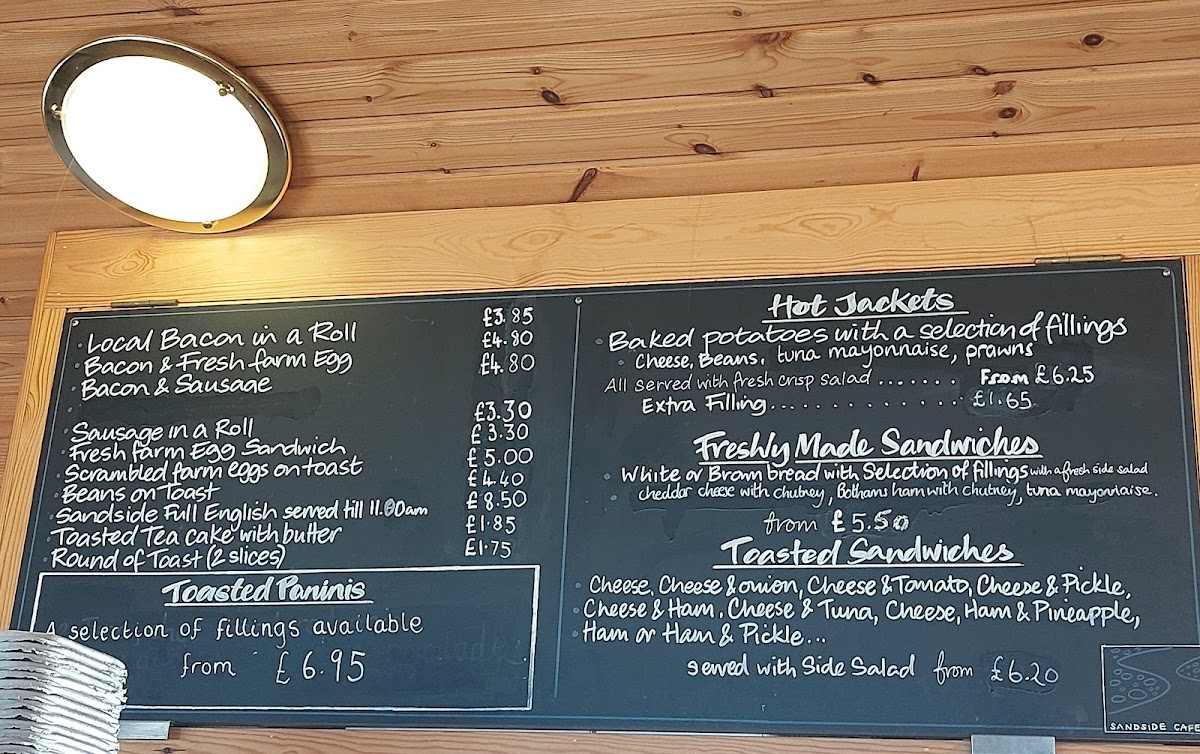 Local Bacon in a Roll £3.85
Bacon & Fresh farm Egg £4.80
Bacon & Sausage £4.80
Sausage in a Roll £3.30
Fresh farm Egg Sandwich £3.30
Scrambled farm eggs on toast £5.00
Beans on Toast £4.40
Sandside Full English served till 11.00am £8.50
Toasted Tea cake with butter £1.85
Round of Toast (2 slices) £1.75
Toasted Paninis
A selection of fillings available
from £6.95
Hot Jackets
Baked potatoes with a selection of fillings
Cheese, Beans, tuna mayonnaise, prawns
All served with fresh crisp salad ....... From £6.25
Extra Filling............. £1.65
Freshly Made Sandwiches
White or Brown bread with Selection of fillings with a fresh side salad
cheddar cheese with chutney, Bothams ham with chutney, tuna mayonnaise.
from £5.50
Toasted Sandwiches
Cheese, Cheese & onion, Cheese & Tomato, Cheese & Pickle,
Cheese & Ham, Cheese & Tuna, Cheese, Ham & Pineapple,
Ham or Ham & Pickle...
served with Side Salad from £6.20
SANDSIDE CAFE